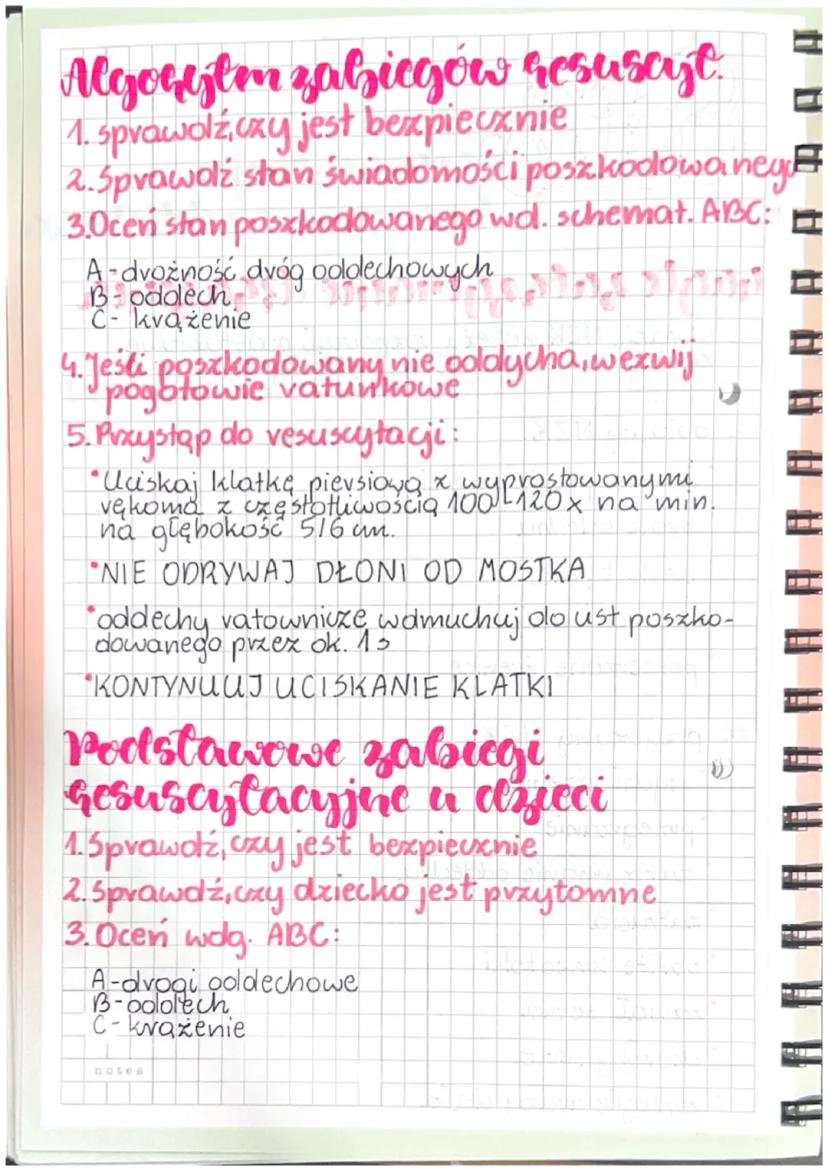 Algorytm zabiegów resuscyt.
1. sprawdź, czy jest bezpiecznie
2. Sprawdź stan świadomości poszkodowanego
3. Oceń stan poszkodowanego wd. schemat. ABC:
A - drożność dróg oddechowych
B - oddech
C - krążenie
4. Jeśli poszkodowany nie oddycha, wezwij
pogotowie ratunkowe
5. Przystąp do resuscytacji:
•Uciskaj klatkę piersiową z wyprostowanymi
rękoma z częstotliwością 100-120x na min.
na głębokość 5/6 cm.
•NIE ODRYWAJ DŁONI OD MOSTKA
•oddechy ratownicze wdmuchuj do ust poszko-
dowanego przez ok. 1s
•KONTYNUUJ UCISKANIE KLATKI
Podstawowe zabiegi
resuscytacyjne u dzieci
1. Sprawdź, czy jest bezpiecznie
2. Sprawdź, czy dziecko jest przytomne
3. Oceń wdg. ABC:
A - drogi oddechowe
B - oddech
C - krążenie
notes